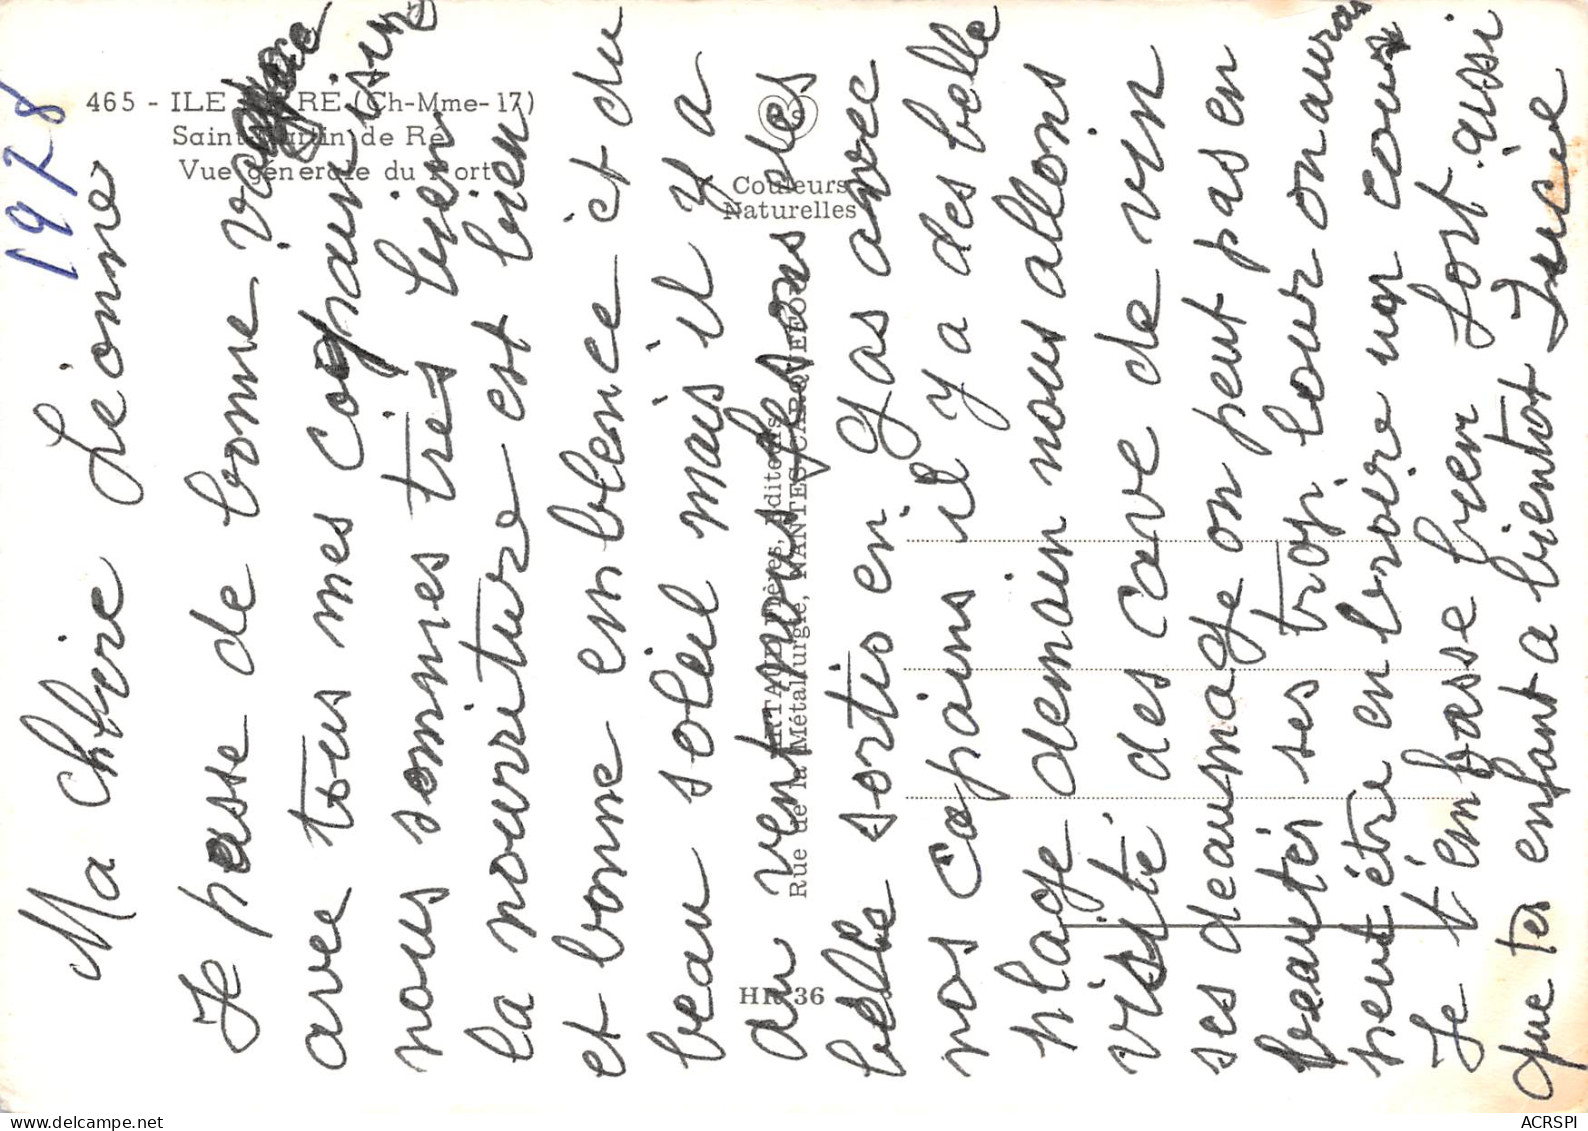 1978
465 - ILE DE RE (Ch-Mme-17)
Saint-Martin de Ré
Vue générale du Port
Couleurs
Naturelles
ARTAUD Frères, Editeurs
Rue de la Métallurgie, NANTES-CARQUEFOU
HR 36
Ma Chère Léonne
Je passe de bonne
avec tous mes copains
nous sommes très bien
la nourriture est bien
et bonne enblence et du
beau soleil mais il y a
du vent nous fesons des
belle sortis en gas avec
nos copains il y a des belle
plage demain nous allons
visité des cave de vin
ses deausmage on peut pas en
ses trop lour on auras
peut être en boire un cous
Je t'embrasse bien fort aussi
que tes enfant a bientot Lucie
ACRSPI